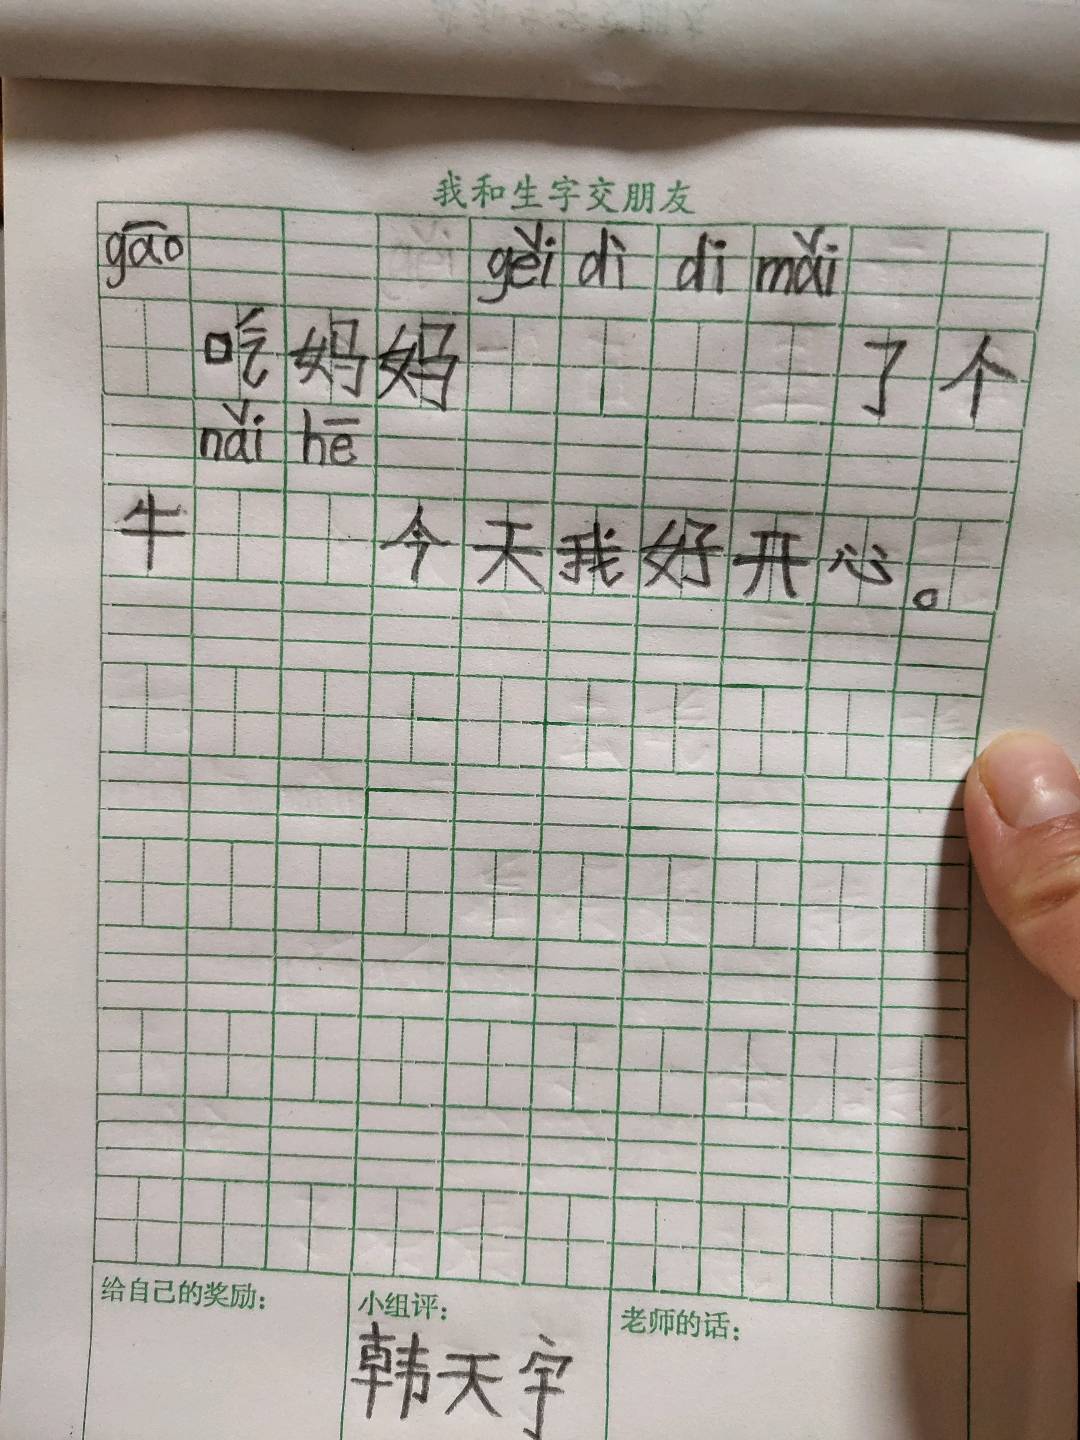 我和生字交朋友
gāo gěi dì di mǎi
吃妈妈了个
nǎi hē
牛今天我好开心。
给自己的奖励： 小组评： 老师的话：
韩天宇